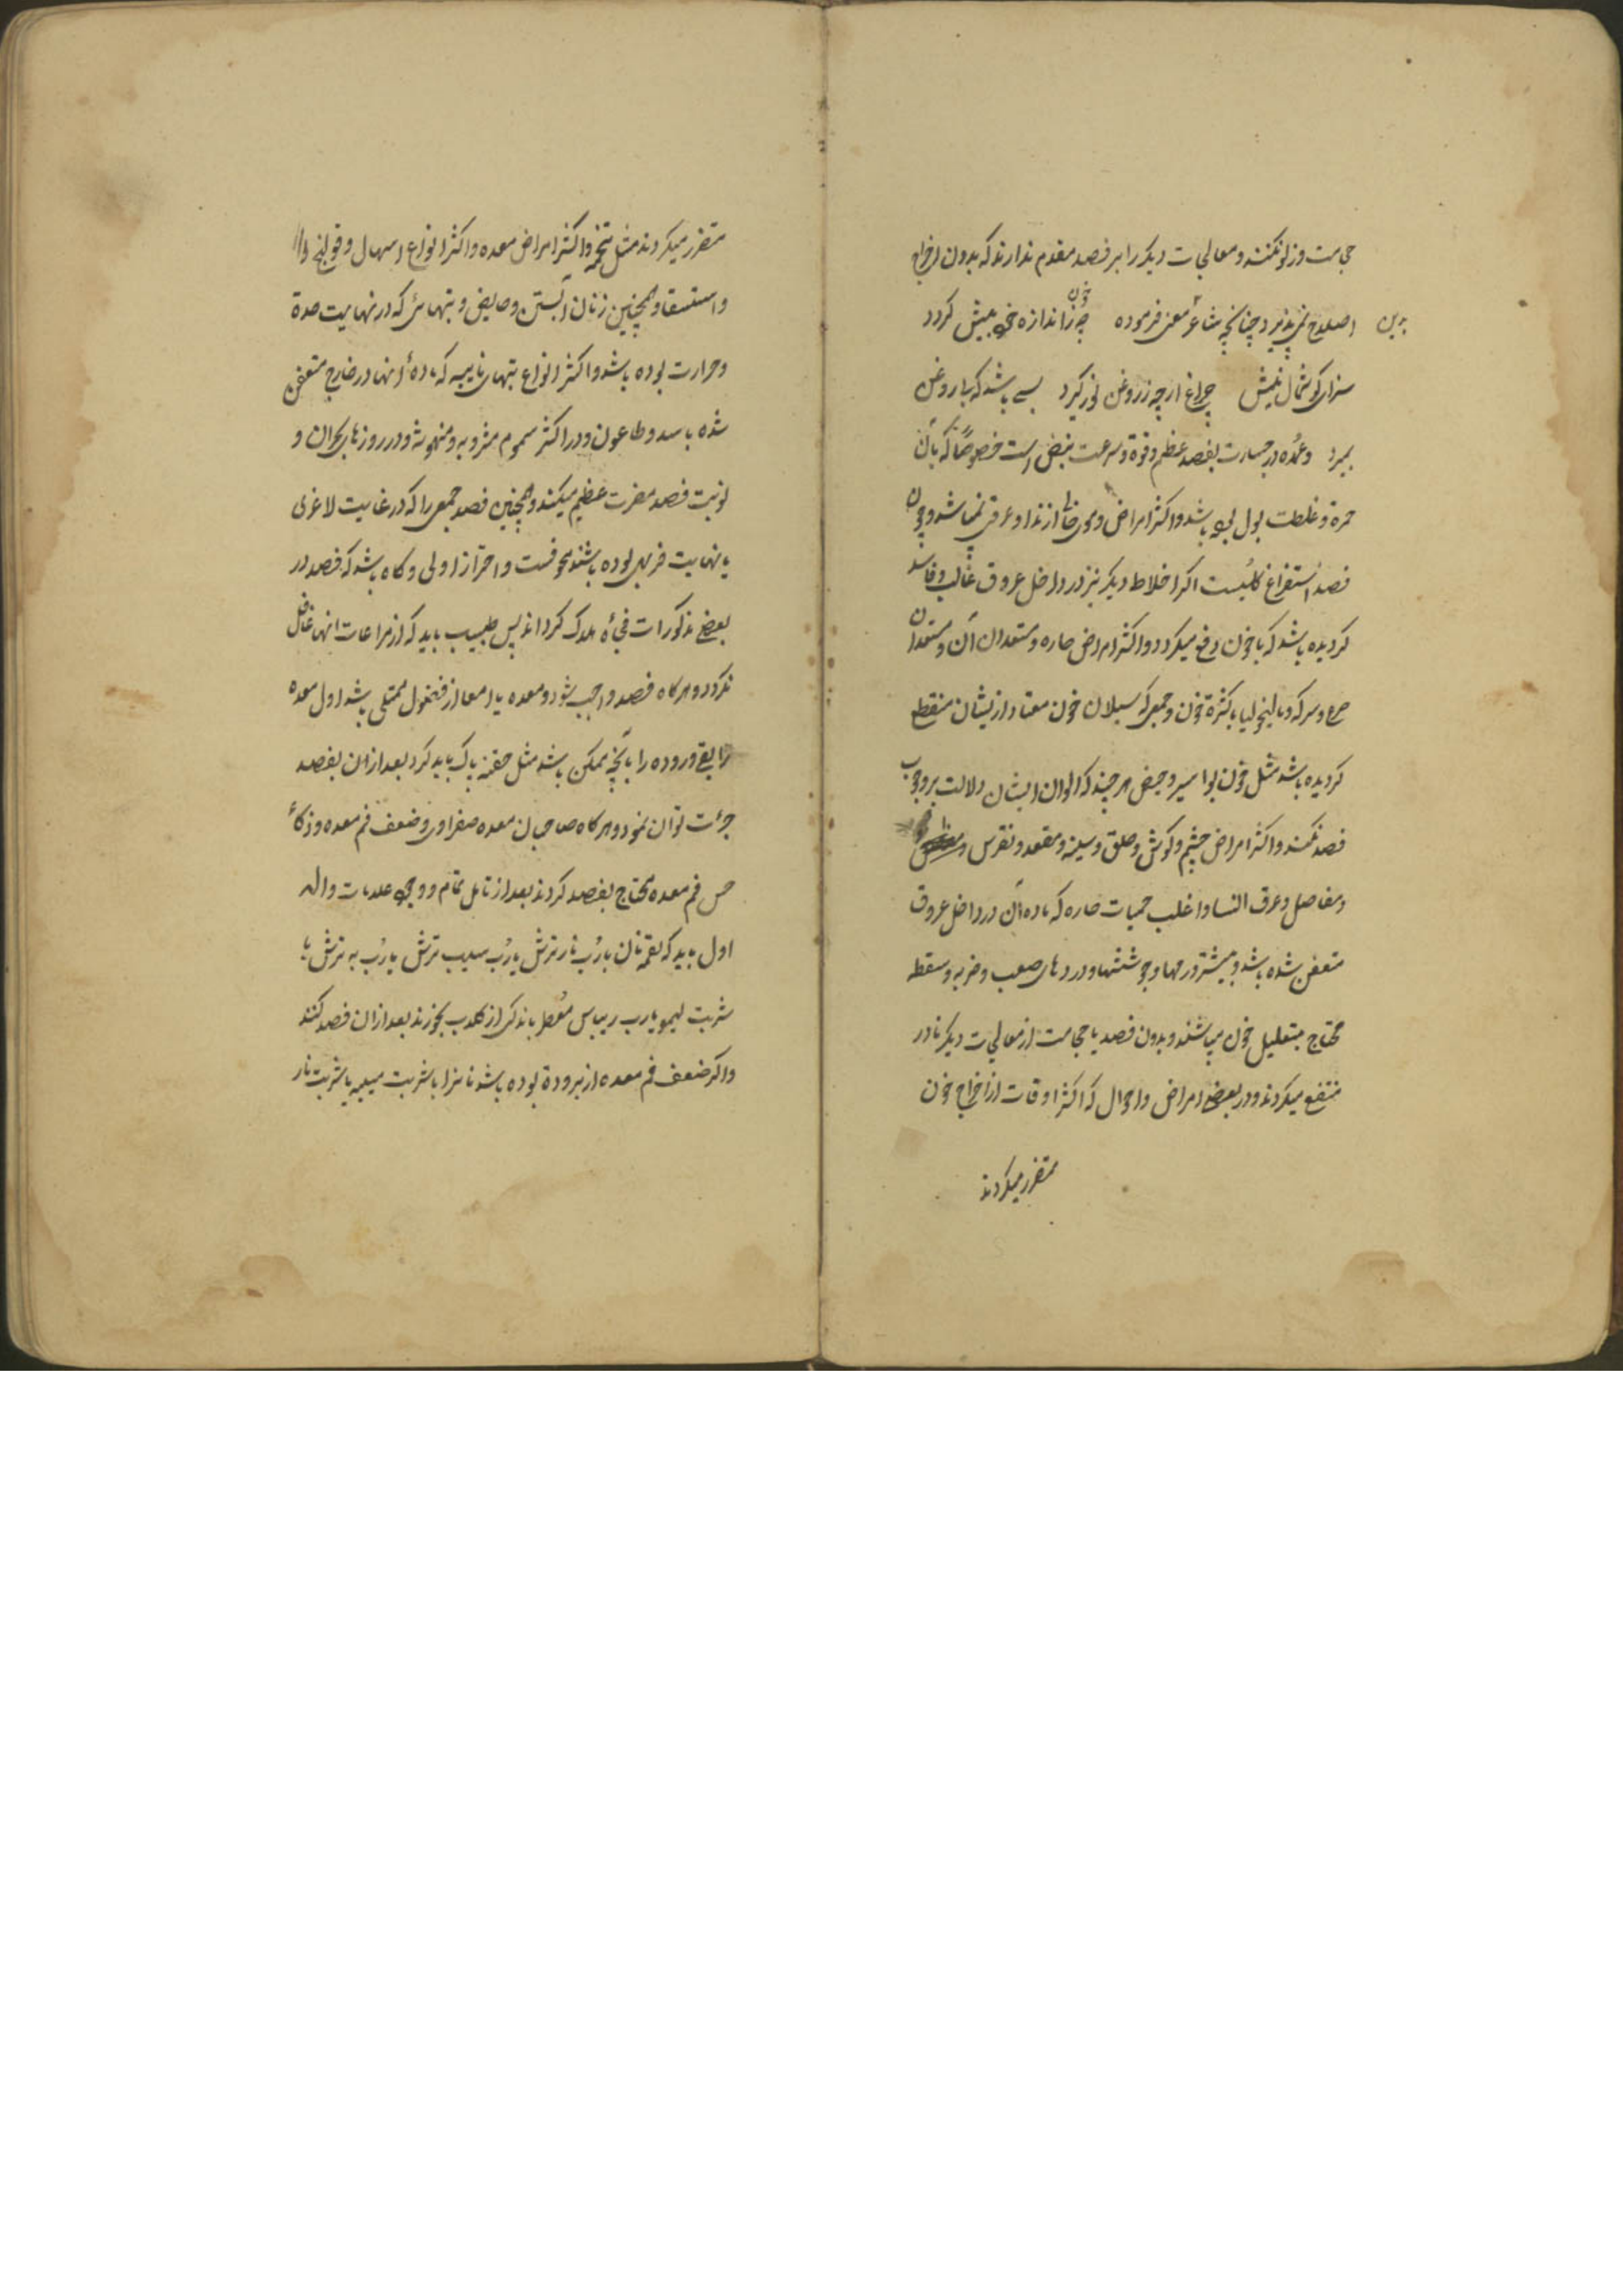 حجامت و زلو نکنند و معالجات دیکر را بر فصد مقدم ندارند که بدون اخراج
اصلاح نمی پذیرد چنانچه شاعر معنی فرموده چو خون ز اندازه خود بیش کردد
سزای کوشمال نیش چراغ ارچه ز روغن نور کیرد بسی باشد که با روغن
بمیرد و عمده در جسارت بفصد عظم و قوة و سرعت نبض است خصوصاً که با آن
حمرة و غلظت بول بوده باشد و اکثر امراض دموی خطا ازندا و عرقی نمیباشد و چون
فصد استفراغ کلیست اکر اخلاط دیکر نیز در داخل عروق غالب و فاسد
کردیده باشد که با خون دفع میکردد و اکثر امراض حاره و مستعدان آن و مستعدان
صرع و سرکه و مالیخولیا با کثرة خون و جمعی که سیلان خون معتاد از یشان منقطع
کردیده باشد مثل خون بواسیر و حیض هر چند که الوان ایشان دلالت بر وجوب
فصد نکند و اکثر امراض چشم و کوش و حلق و سینه و مقعد و نقرس
و مفاصل و عرق النسا و اغلب حمیات حاره که ماده آن در داخل عروق
متعفن شده باشد و بیشتر ورمها و جوششها و دردهای صعب و ضربه و سقطه
محتاج بتقلیل خون میباشند و بدون فصد یا حجامت از معالجات دیکر نادر
منتفع میکردند و در بعضی امراض و احوال که اکثر اوقات از اخراج خون
متضرر میکردند
متضرر میکردند مثل تخمه و اکثر امراض معده و اکثر انواع اسهال و قولنج
و استسقا و همچنین زنان آبستن و حایض و تبهائی که در نهایت حدة
و حرارت بوده باشد و اکثر انواع تبهای نایبه که ماده آنها در خارج متعفن
شده باشد و طاعون و در اکثر سموم مشروبه و منهوشه و در روزهای بحران و
نوبت فصد مضرت عظیم میکند و همچنین فصد جمعی را که در غایت لاغری
یا نهایت فربهی بوده باشند مخوفست و احتراز اولی و کاه باشد که فصد در
بعضی مذکورات فجأه هلاک کرداند پس طبیب باید که از مراعات آنها غافل
نکردد و هر کاه فصد واجب شود و معده یا امعا از فضول ممتلی باشد اول معده
را بقی و روده را بآنچه ممکن باشد مثل حقنه پاک باید کرد بعد از آن بفصد
جرءت توان نمود و هر کاه صاحبان معده صفراوی و ضعف فم معده و ذکاء
حس فم معده محتاج بفصد کردند بعد از تامل تمام و وجود علامات داله
اول باید که لقمه نان با رُب نار ترش یا رُب سیب ترش یا رُب به ترش یا
شربت لیمو یا رب ریباس معطر باندکی از کلاب بخورند بعد از آن فصد کنند
و اکر ضعف فم معده از برودة بوده باشد نانرا با شربت میبه یا شربت نار